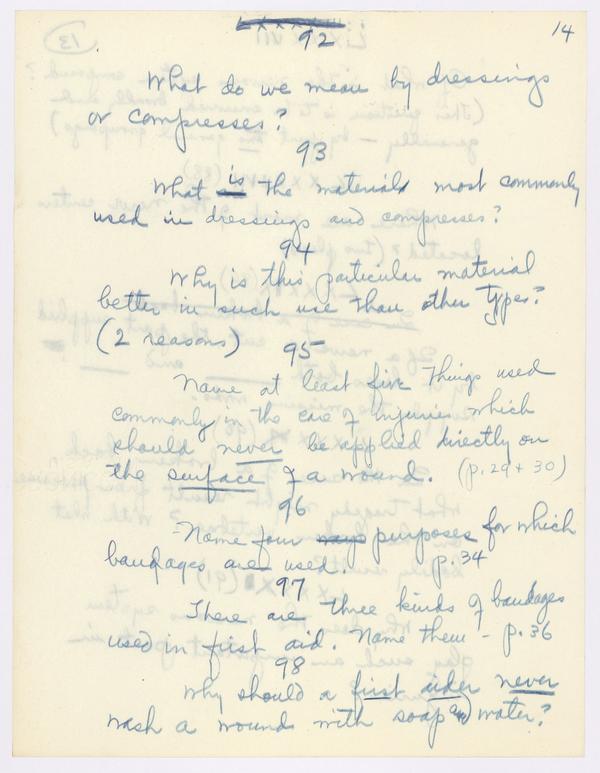 14
92
What do we mean by dressings
or compresses?
93
What is the material most commonly
used in dressings and compresses?
94
Why is this particular material
better in such use than other types?
(2 reasons)
95
Name at least five things used
commonly in the care of injuries which
should never be applied directly on
the surface of a wound. (p. 29 + 30)
96
Name four ways purposes for which
bandages are used. p. 34
97
There are three kinds of bandages
used in first aid. Name them - p. 36
98
Why should a first aider never
wash a wound with soap and water?